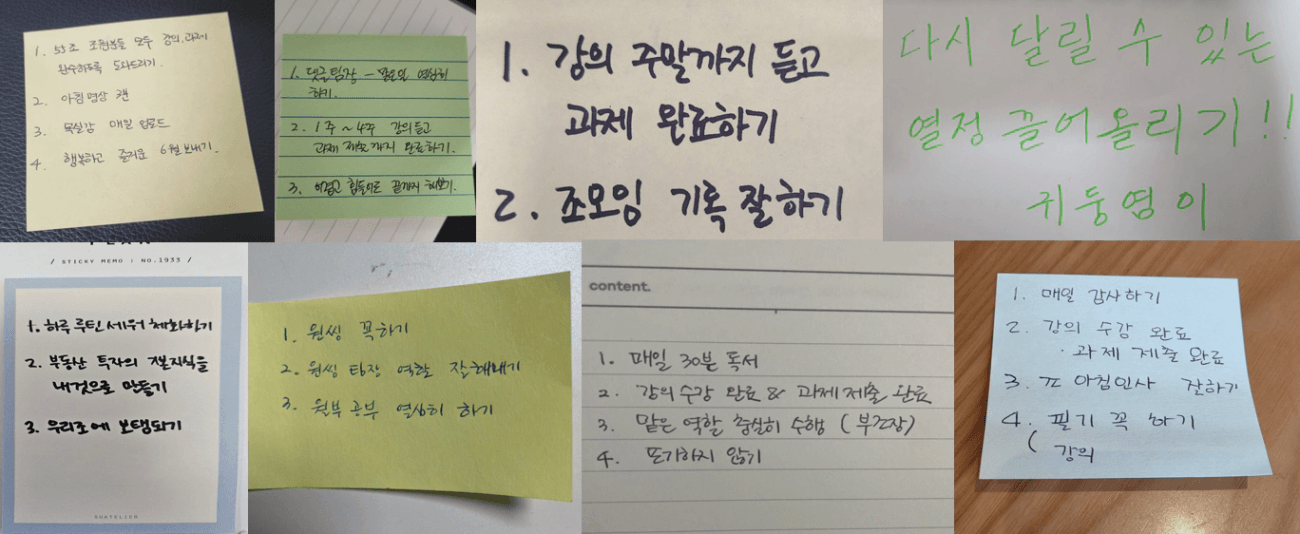 1. 55조 조원분들 모두 강의, 과제
완수하도록 도와드리기.
2. 아침명상 3분
3. 목실감 매일 업로드
4. 행복하고 즐거운 6월 보내기.
1. 댓글팀장 - 열심히
하기.
2. 1주 ~ 4주 강의듣고
과제 제출까지 완료하기.
3. 어렵고 힘들어도 끝까지 해보기.
1. 강의 주말까지 듣고
과제 완료하기
2. 조모임 기록 잘하기
다시 달릴 수 있는
열정 끌어올리기!!
귀둥염이
/ STICKY MEMO : NO.1933 /
1. 하루 루틴 세워 체화하기
2. 부동산 투자의 기본지식을
내것으로 만들기
3. 우리조에 보탬되기
1. 원씽 꼭하기
2. 원씽 팀장 역할 잘해내기
3. 원부 공부 열심히 하기
content.
1. 매일 30분 독서
2. 강의 수강 완료 & 과제 제출 완료
3. 맡은 역할 충실히 수행 (부조장)
4. 포기하지 않기
1. 매일 감사하기
2. 강의 수강 완료
· 과제 제출 완료
3. 아침인사 잘하기
4. 필기 꼭 하기
( 강의